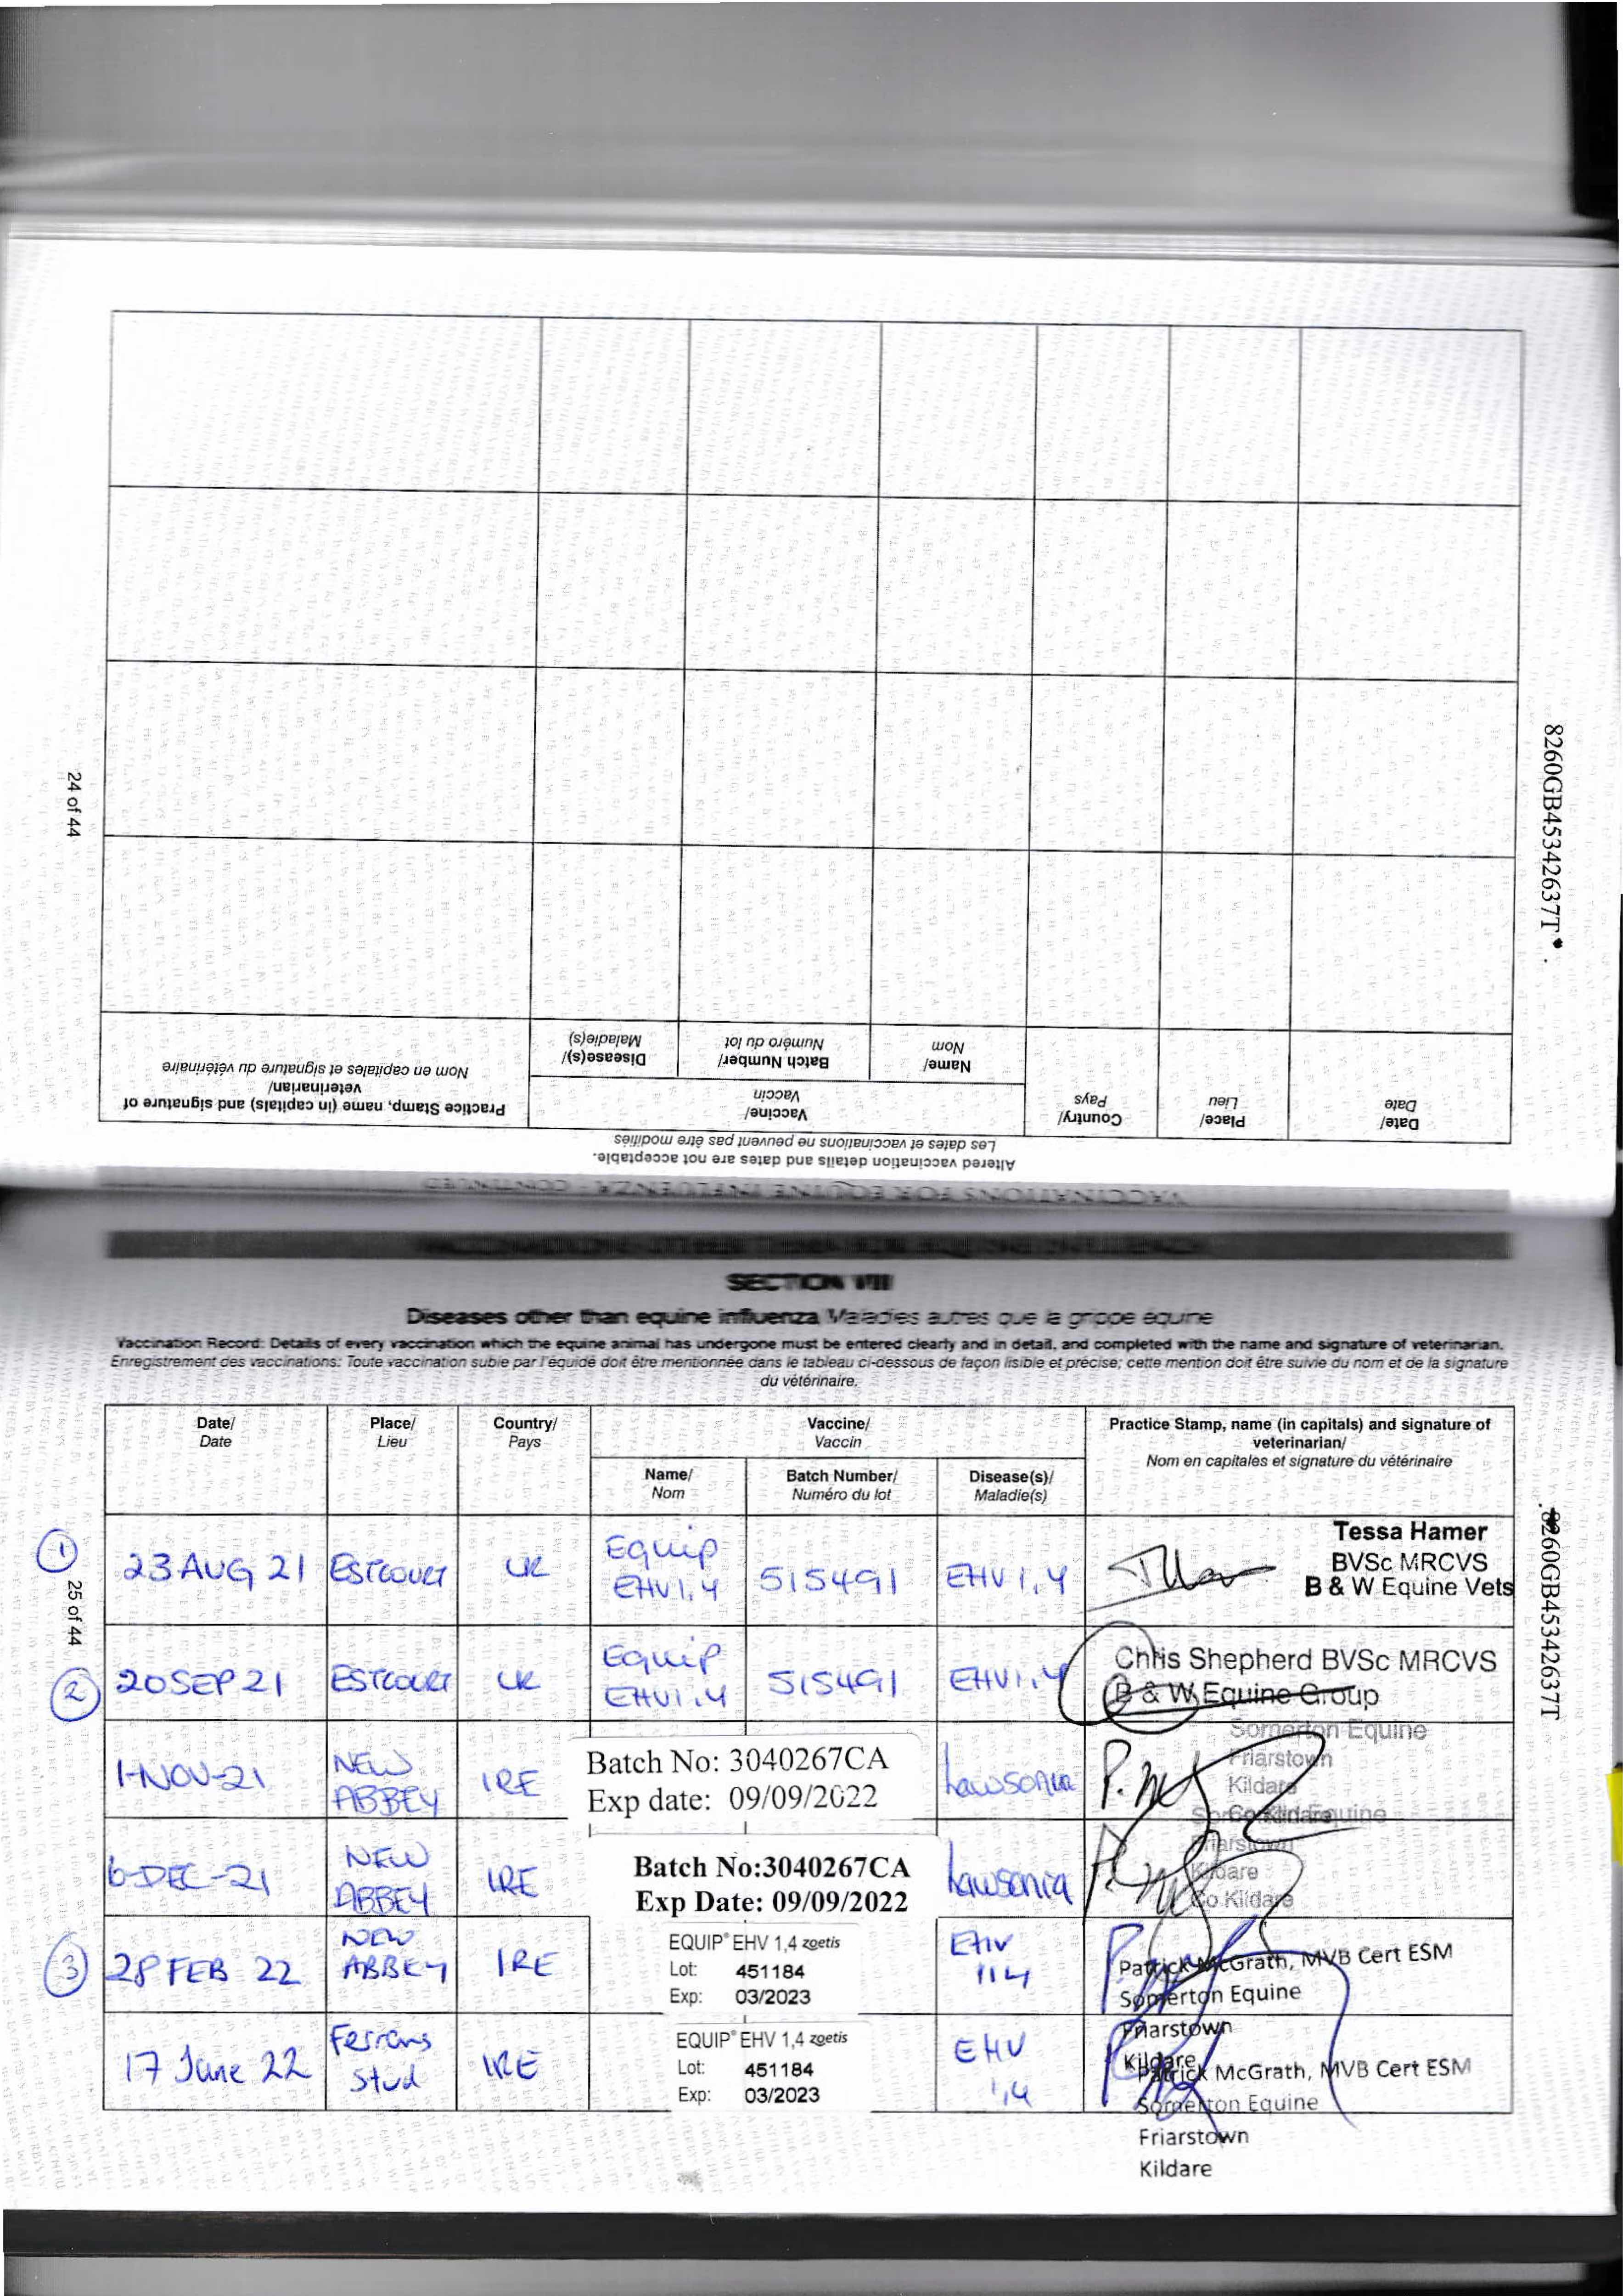 24 of 44
8260GB45342637T
Practice Stamp, name (in capitals) and signature of
veterinarian/
Nom en capitales et signature du vétérinaire
Disease(s)/
Maladie(s)
Batch Number/
Numéro du lot
Name/
Nom
Vaccine/
Vaccin
Country/
Pays
Place/
Lieu
Date/
Date
Altered vaccination details and dates are not acceptable.
Les dates et vaccinations ne peuvent pas être modifiés
VACCINATIONS FOR EQUINE INFLUENZA - CONTINUED
SECTION VIII
Diseases other than equine influenza Maladies autres que la grippe équine
Vaccination Record: Details of every vaccination which the equine animal has undergone must be entered clearly and in detail, and completed with the name and signature of veterinarian.
Enregistrement des vaccinations: Toute vaccination subie par l'équidé doit être mentionnée dans le tableau ci-dessous de façon lisible et précise; cette mention doit être suivie du nom et de la signature
du vétérinaire.
Date/
Date
Place/
Lieu
Country/
Pays
Vaccine/
Vaccin
Name/
Nom
Batch Number/
Numéro du lot
Disease(s)/
Maladie(s)
Practice Stamp, name (in capitals) and signature of
veterinarian/
Nom en capitales et signature du vétérinaire
25 of 44
8260GB45342637T
1 23 AUG 21 ESTCOURT UK Equip EHV1,4 515491 EHV 1,4
Tessa Hamer
BVSc MRCVS
B & W Equine Vets
2 20 SEP 21 ESTCOURT UK Equip EHV1,4 515491 EHV1,4
Chris Shepherd BVSc MRCVS
B & W Equine Group
1-NOV-21 NEW ABBEY IRE
Batch No: 3040267CA
Exp date: 09/09/2022
Lawsonia
Somerton Equine
Friarstown
Kildare
Co Kildare
6-DEC-21 NEW ABBEY IRE
Batch No:3040267CA
Exp Date: 09/09/2022
Lawsonia
Somerton Equine
Friarstown
Kildare
Co Kildare
3 28 FEB 22 NEW ABBEY IRE
EQUIP® EHV 1,4 zoetis
Lot: 451184
Exp: 03/2023
EHV 1,4
Patrick McGrath, MVB Cert ESM
Somerton Equine
Friarstown
Kildare
17 June 22 Ferrans Stud IRE
EQUIP® EHV 1,4 zoetis
Lot: 451184
Exp: 03/2023
EHV 1,4
Patrick McGrath, MVB Cert ESM
Somerton Equine
Friarstown
Kildare